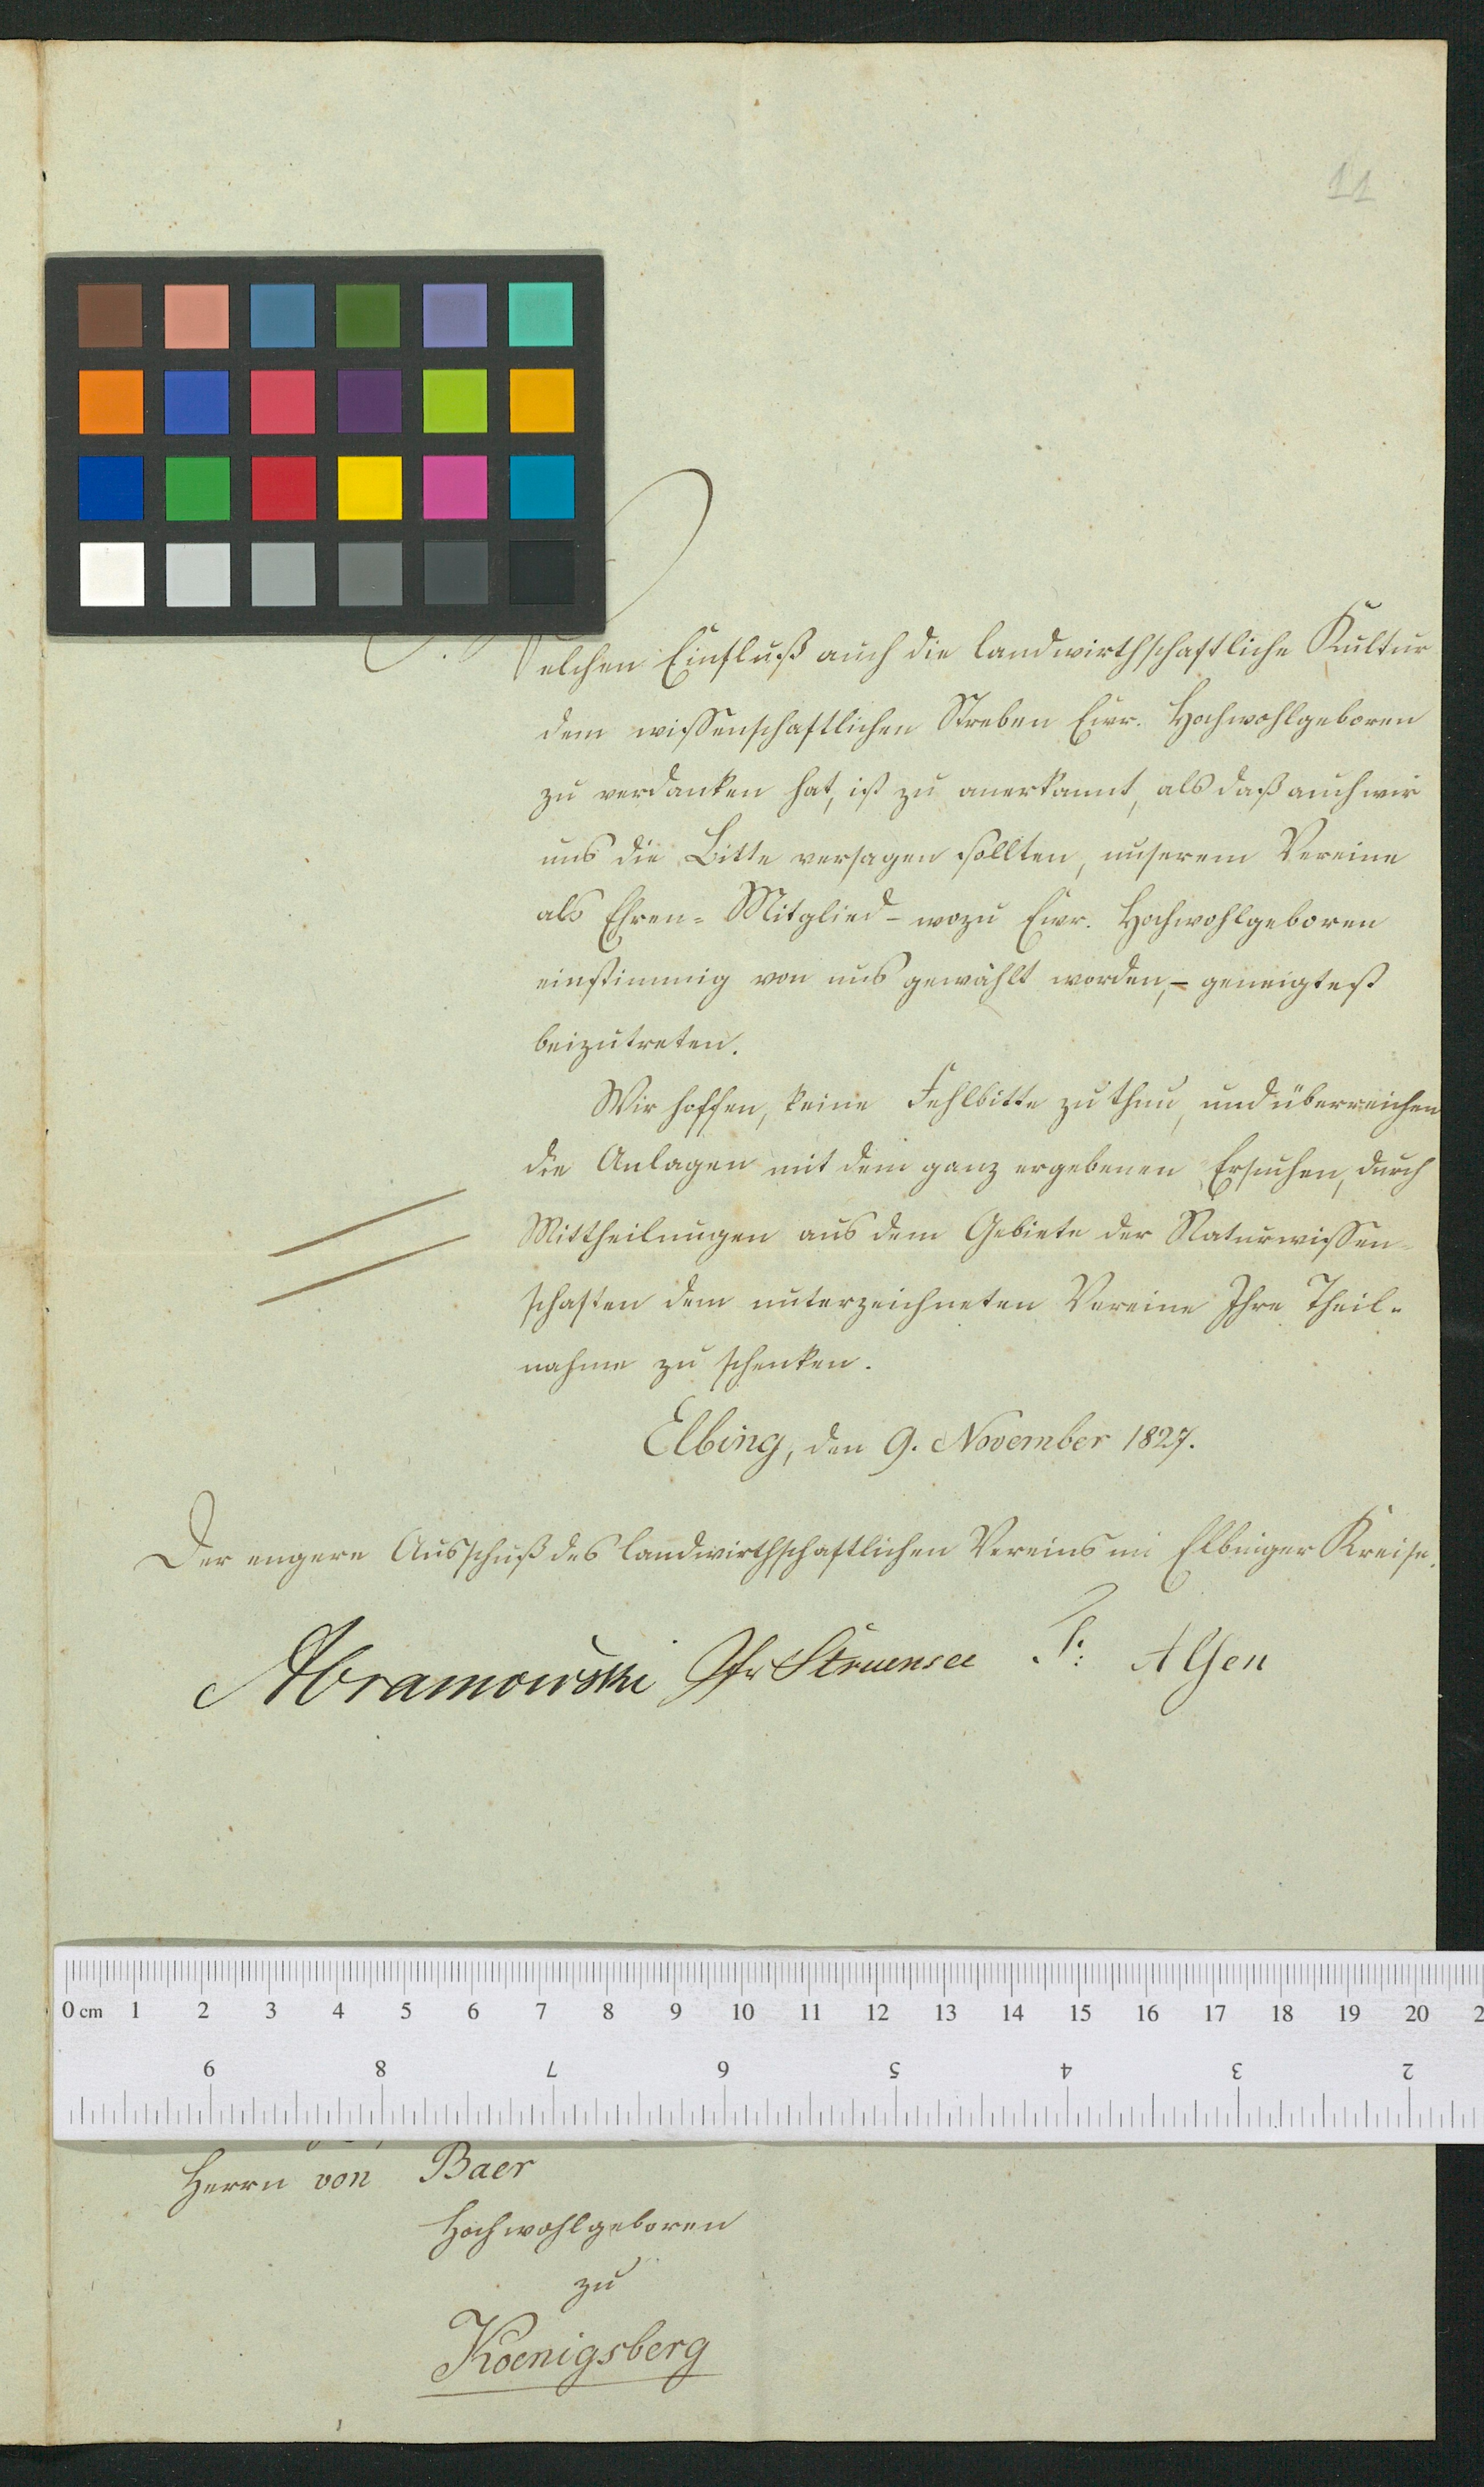 11
Welchen Einfluß auch die landwirthschaftliche Kultur
dem wissenschaftlichen Streben Ewr. Hochwohlgeboren
zu verdanken hat, ist zu anerkannt, als daß auch wir
uns die Bitte versagen sollten, unserem Vereine
als Ehren-Mitglied - wozu Ewr. Hochwohlgeboren
einstimmig von uns gewählt worden, - geneigtest
beizutreten.
Wir hoffen, keine Fehlbitte zu thun, und überreichen
die Anlagen mit dem ganz ergebenen Ersuchen, durch
Mittheilungen aus dem Gebiete der Naturwissen-
schaften dem unterzeichneten Vereine Ihre Theil-
nahme zu schenken.
Elbing, den 9. November 1827.
Der engere Ausschuß des landwirthschaftlichen Vereins im Elbinger Kreise.
Abramowski Struensee Alsen
0 cm 1 2 3 4 5 6 7 8 9 10 11 12 13 14 15 16 17 18 19 20 2
9 8 7 6 5 4 3 2
Herrn von Baer
Hochwohlgeboren
zu
Koenigsberg